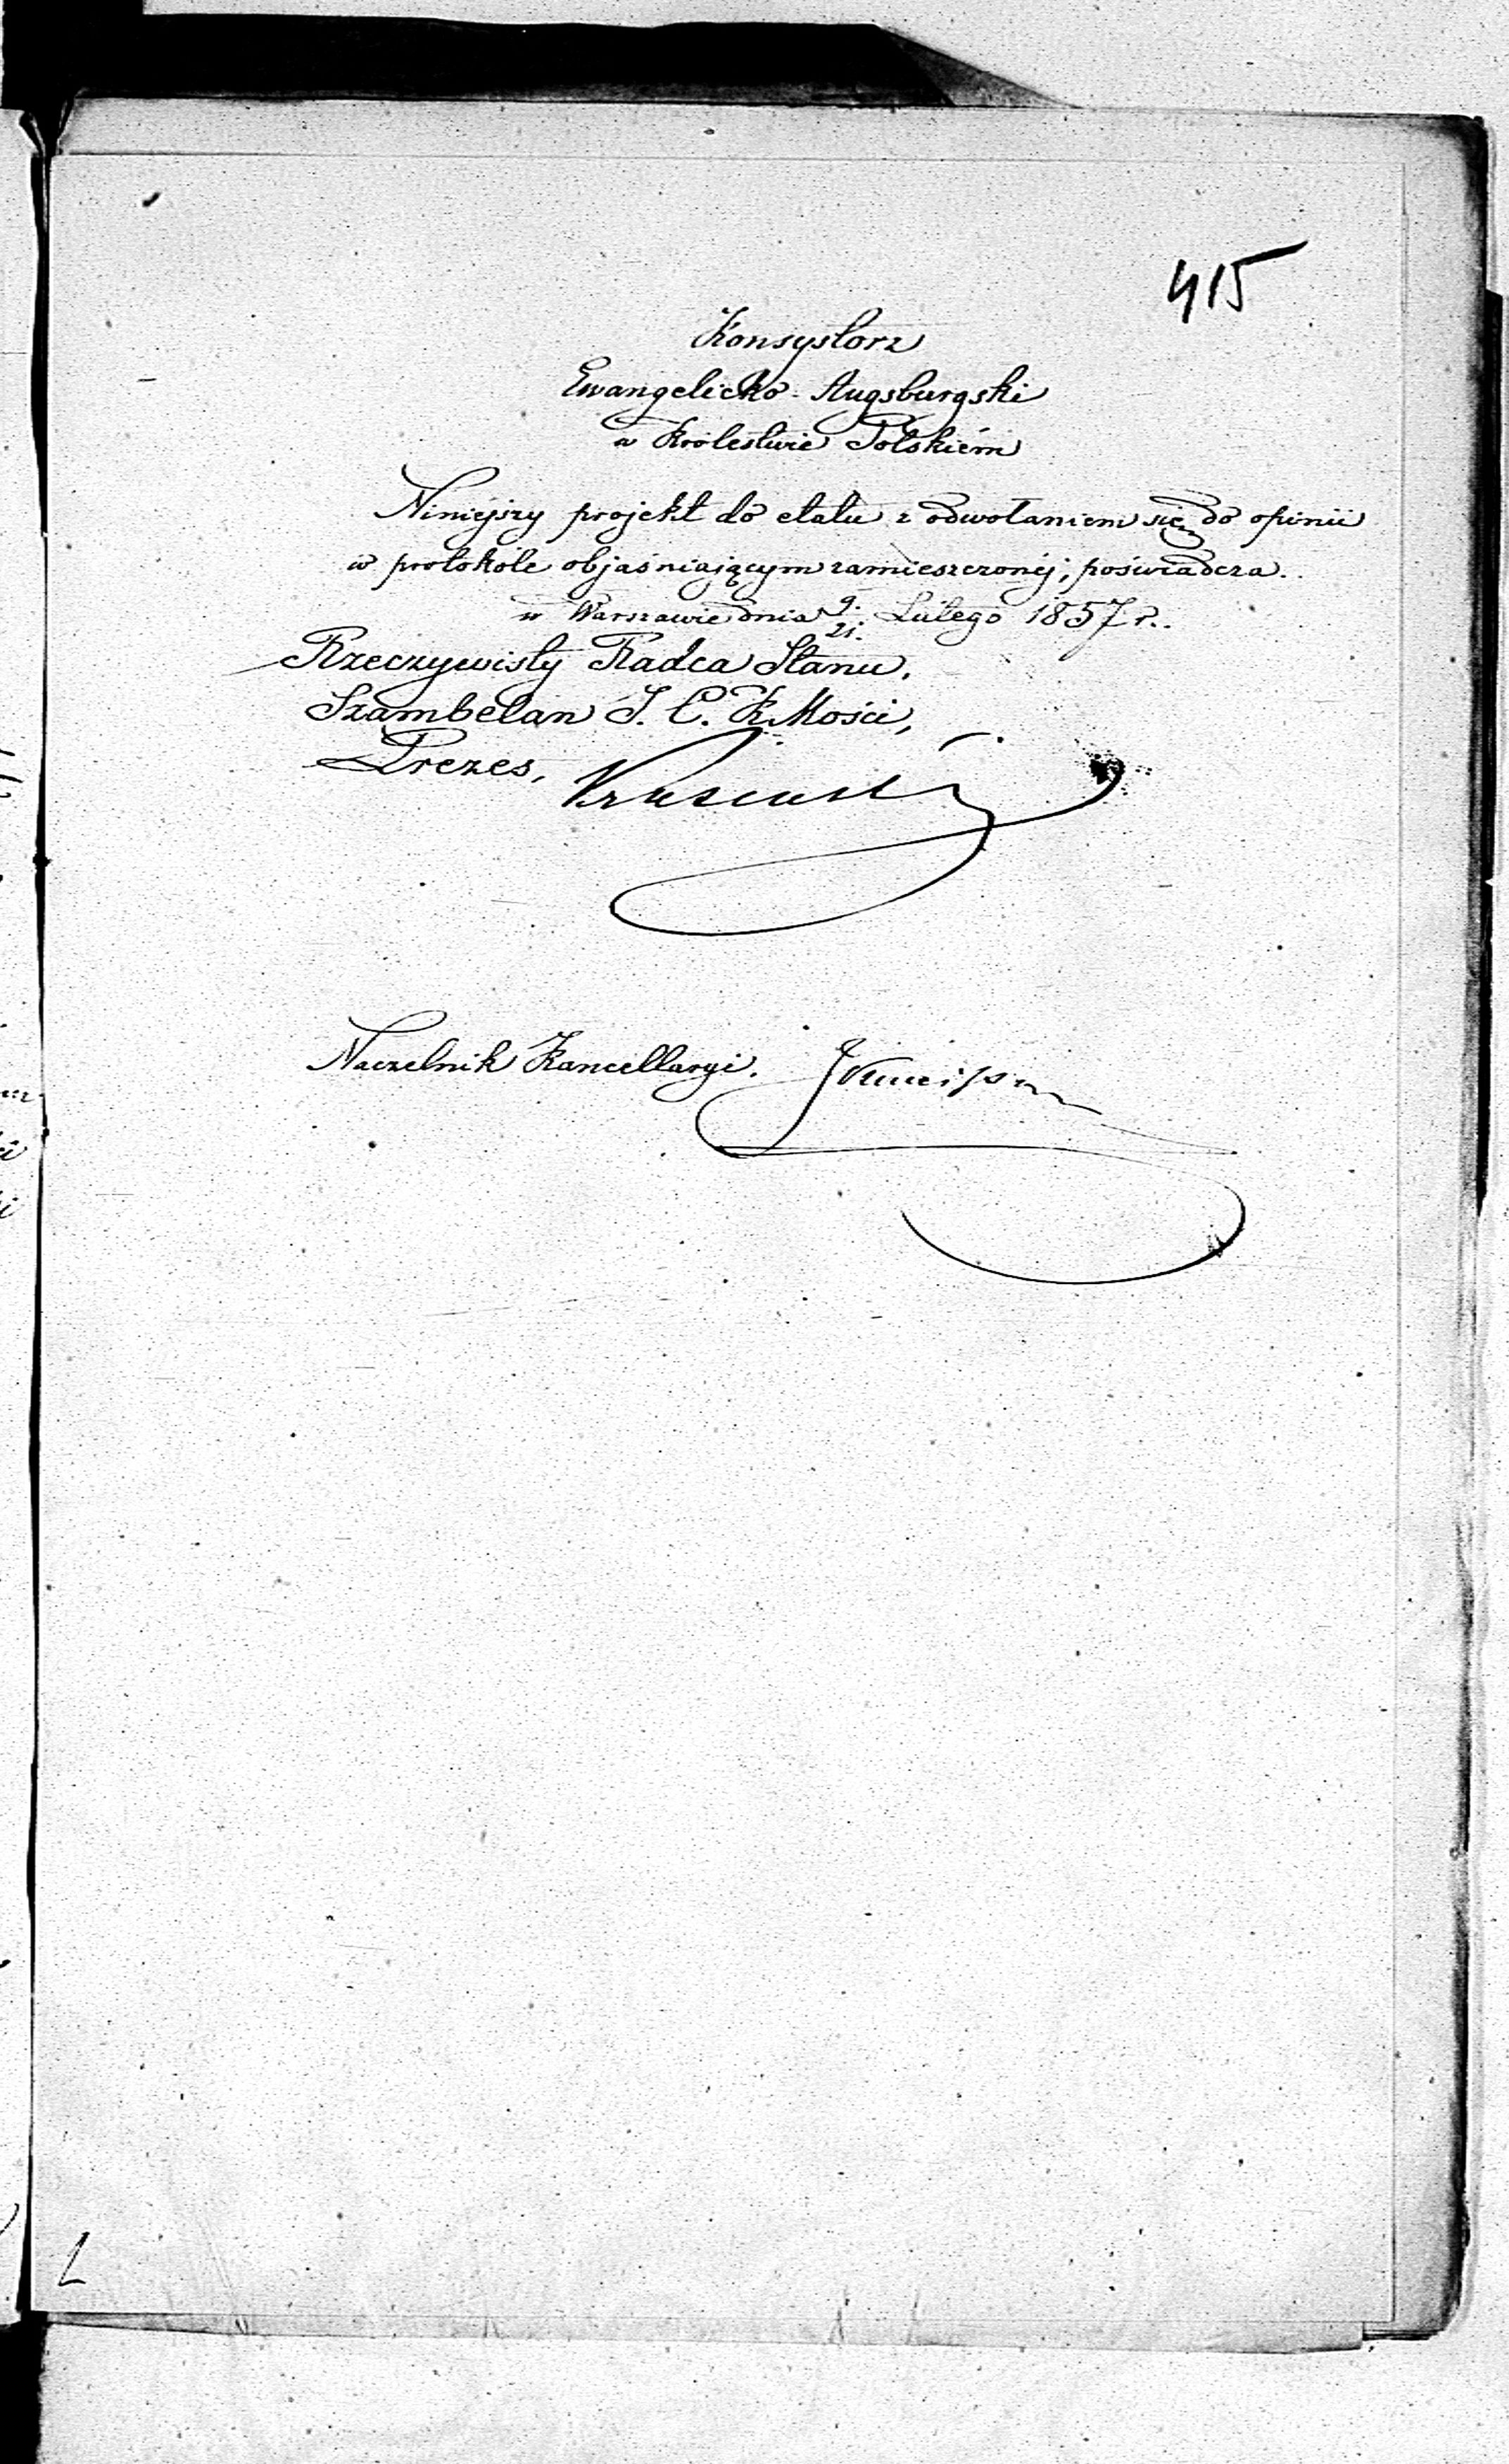 415
Konsystorz
Ewangelicko-Augsburgski
w Królestwie Polskiém
Niniejszy projekt do etatu z odwołaniem się do opinii
w protokóle objaśniającym zamieszczonéj, poświadcza.
w Warszawie dnia 9./21. Lutego 1857 r.
Rzeczywisty Radca Stanu,
Szambelan J. C. K. Mości,
Prezes,
Naczelnik Kancellaryi.